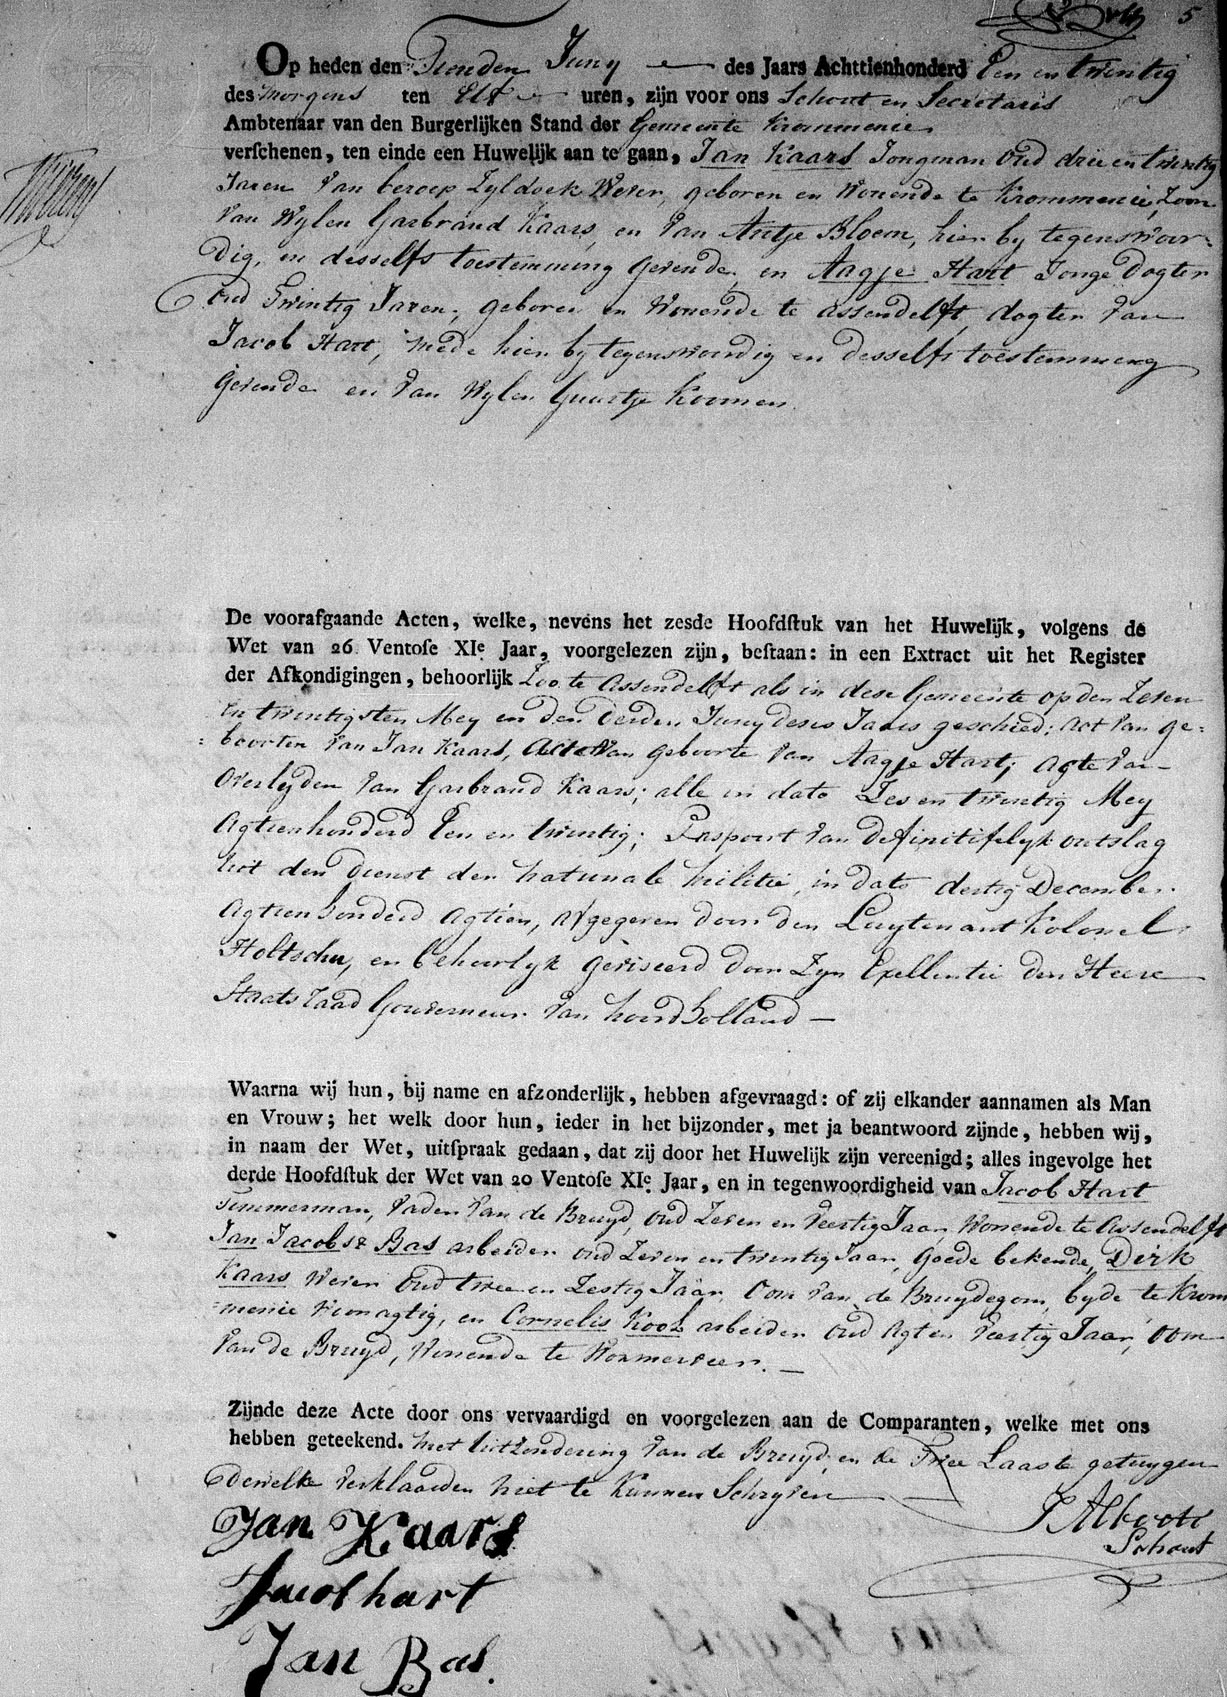 5
Op heden den Tienden Juny des Jaars Achttienhonderd Een en twintig
des morgens ten Elf uren, zijn voor ons Schout en Secretaris
Ambtenaar van den Burgerlijken Stand der Gemeente Krommenie
verſchenen, ten einde een Huwelijk aan te gaan, Jan Kaars Jongman oud drie en twintig
Jaren Van beroep Zyldoek Wever, geboren en Wonende te Krommenie, Zoon
Van Wylen Garbrand Kaars, en Van Antje Bloem, hier by tegenswoor-
dig, en desselfs toestemming Gevende, en Aagje Hart Jonge Dogter
oud Twintig Jaren, geboren en Wonende te Assendelft, dogter Van
Jacob Hart, mede hier by tegenswoordig en desselfs toestemming
Gevende en Van Wylen Guurtje Koomen
De voorafgaande Acten, welke, nevens het zesde Hoofdſtuk van het Huwelijk, volgens de
Wet van 26 Ventoſe XIe Jaar, voorgelezen zijn, beſtaan: in een Extract uit het Register
der Afkondigingen, behoorlijk Zoo te Assendelft als in dese Gemeente op den Zeven
en twintigsten Mey en den derden Juny deses Jaars geschied; Act Van ge=
=boorten Van Jan Kaars, Acte Van geboorte Van Aagje Hart; Acte Van
Overlyden Van Garbrand Kaars; alle in dato Zes en twintig Mey
Agtienhonderd Een en twintig; Paspoort Van definitifelyk ontslag
uit den dienst der Nationale Militie, in dato dertig December
Agtienhonderd Agtien, afgegeven door den Luytenant Kolonel
Holtschu, en behoorlyk geviseerd door Zyn Exellentie den Heere
Staatsraad Gouverneur Van Noordholland —
Waarna wij hun, bij name en afzonderlijk, hebben afgevraagd: of zij elkander aannamen als Man
en Vrouw; het welk door hun, ieder in het bijzonder, met ja beantwoord zijnde, hebben wij,
in naam der Wet, uitſpraak gedaan, dat zij door het Huwelijk zijn vereenigd; alles ingevolge het
derde Hoofdſtuk der Wet van 20 Ventoſe XIe Jaar, en in tegenwoordigheid van Jacob Hart
Timmerman, Vader Van de Bruyd, oud Zeven en Veertig Jaar, Wonende te Assendelft
Jan Jacobsz Bas arbeider oud Zeven en twintig Jaar, Goede bekende, Dirk
Kaars Wever oud twee en Zestig Jaar, Oom Van de Bruydegom, byde te Krom
=menie Woonagtig, en Cornelis Kool arbeider oud Agt en Veertig Jaar, oom
Van de Bruyd, Wonende te Wormerveer. —
Zijnde deze Acte door ons vervaardigd en voorgelezen aan de Comparanten, welke met ons
hebben geteekend. met uitzondering Van de Bruyd, en de Twee Laaste getuygen
dewelke Verklaarden niet te Kunnen Schryven
Jan Kaars
Schout
Jacob hart
Jan Bas.